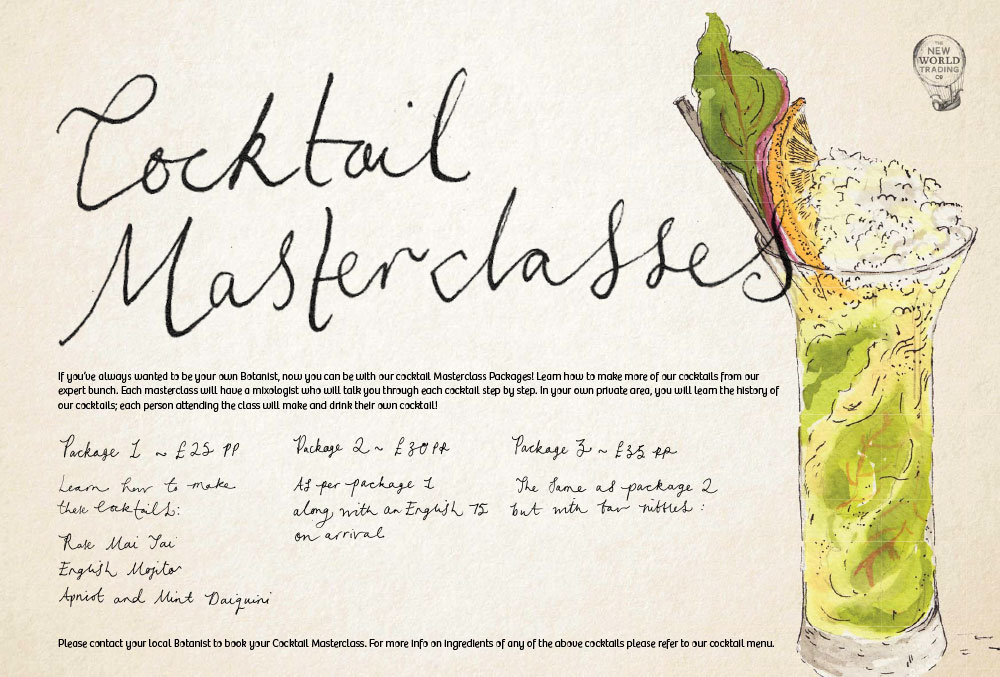 Cocktail
Masterclasses
THE
NEW
WORLD
TRADING
CO
If you've always wanted to be your own Botanist, now you can be with our cocktail Masterclass Packages! Learn how to make more of our cocktails from our
expert bunch. Each masterclass will have a mixologist who will talk you through each cocktail step by step. In your own private area, you will learn the history of
our cocktails; each person attending the class will make and drink their own cocktail!
Package 1 ~ £25 PP
Learn how to make
these Cocktails:
Mai Tai
English Mojito
Apricot and Mint Daiquiri
Package 2 ~ £30 PP
As per package 1
along with an English 75
on arrival
Package 3 ~ £35 PP
The same as package 2
but with bar nibbles :
Please contact your local Botanist to book your Cocktail Masterclass. For more info on ingredients of any of the above cocktails please refer to our cocktail menu.